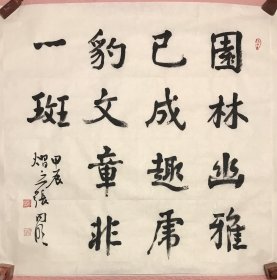 園林幽雅
已成趣虎
豹文章非
一斑
甲辰
熠之張